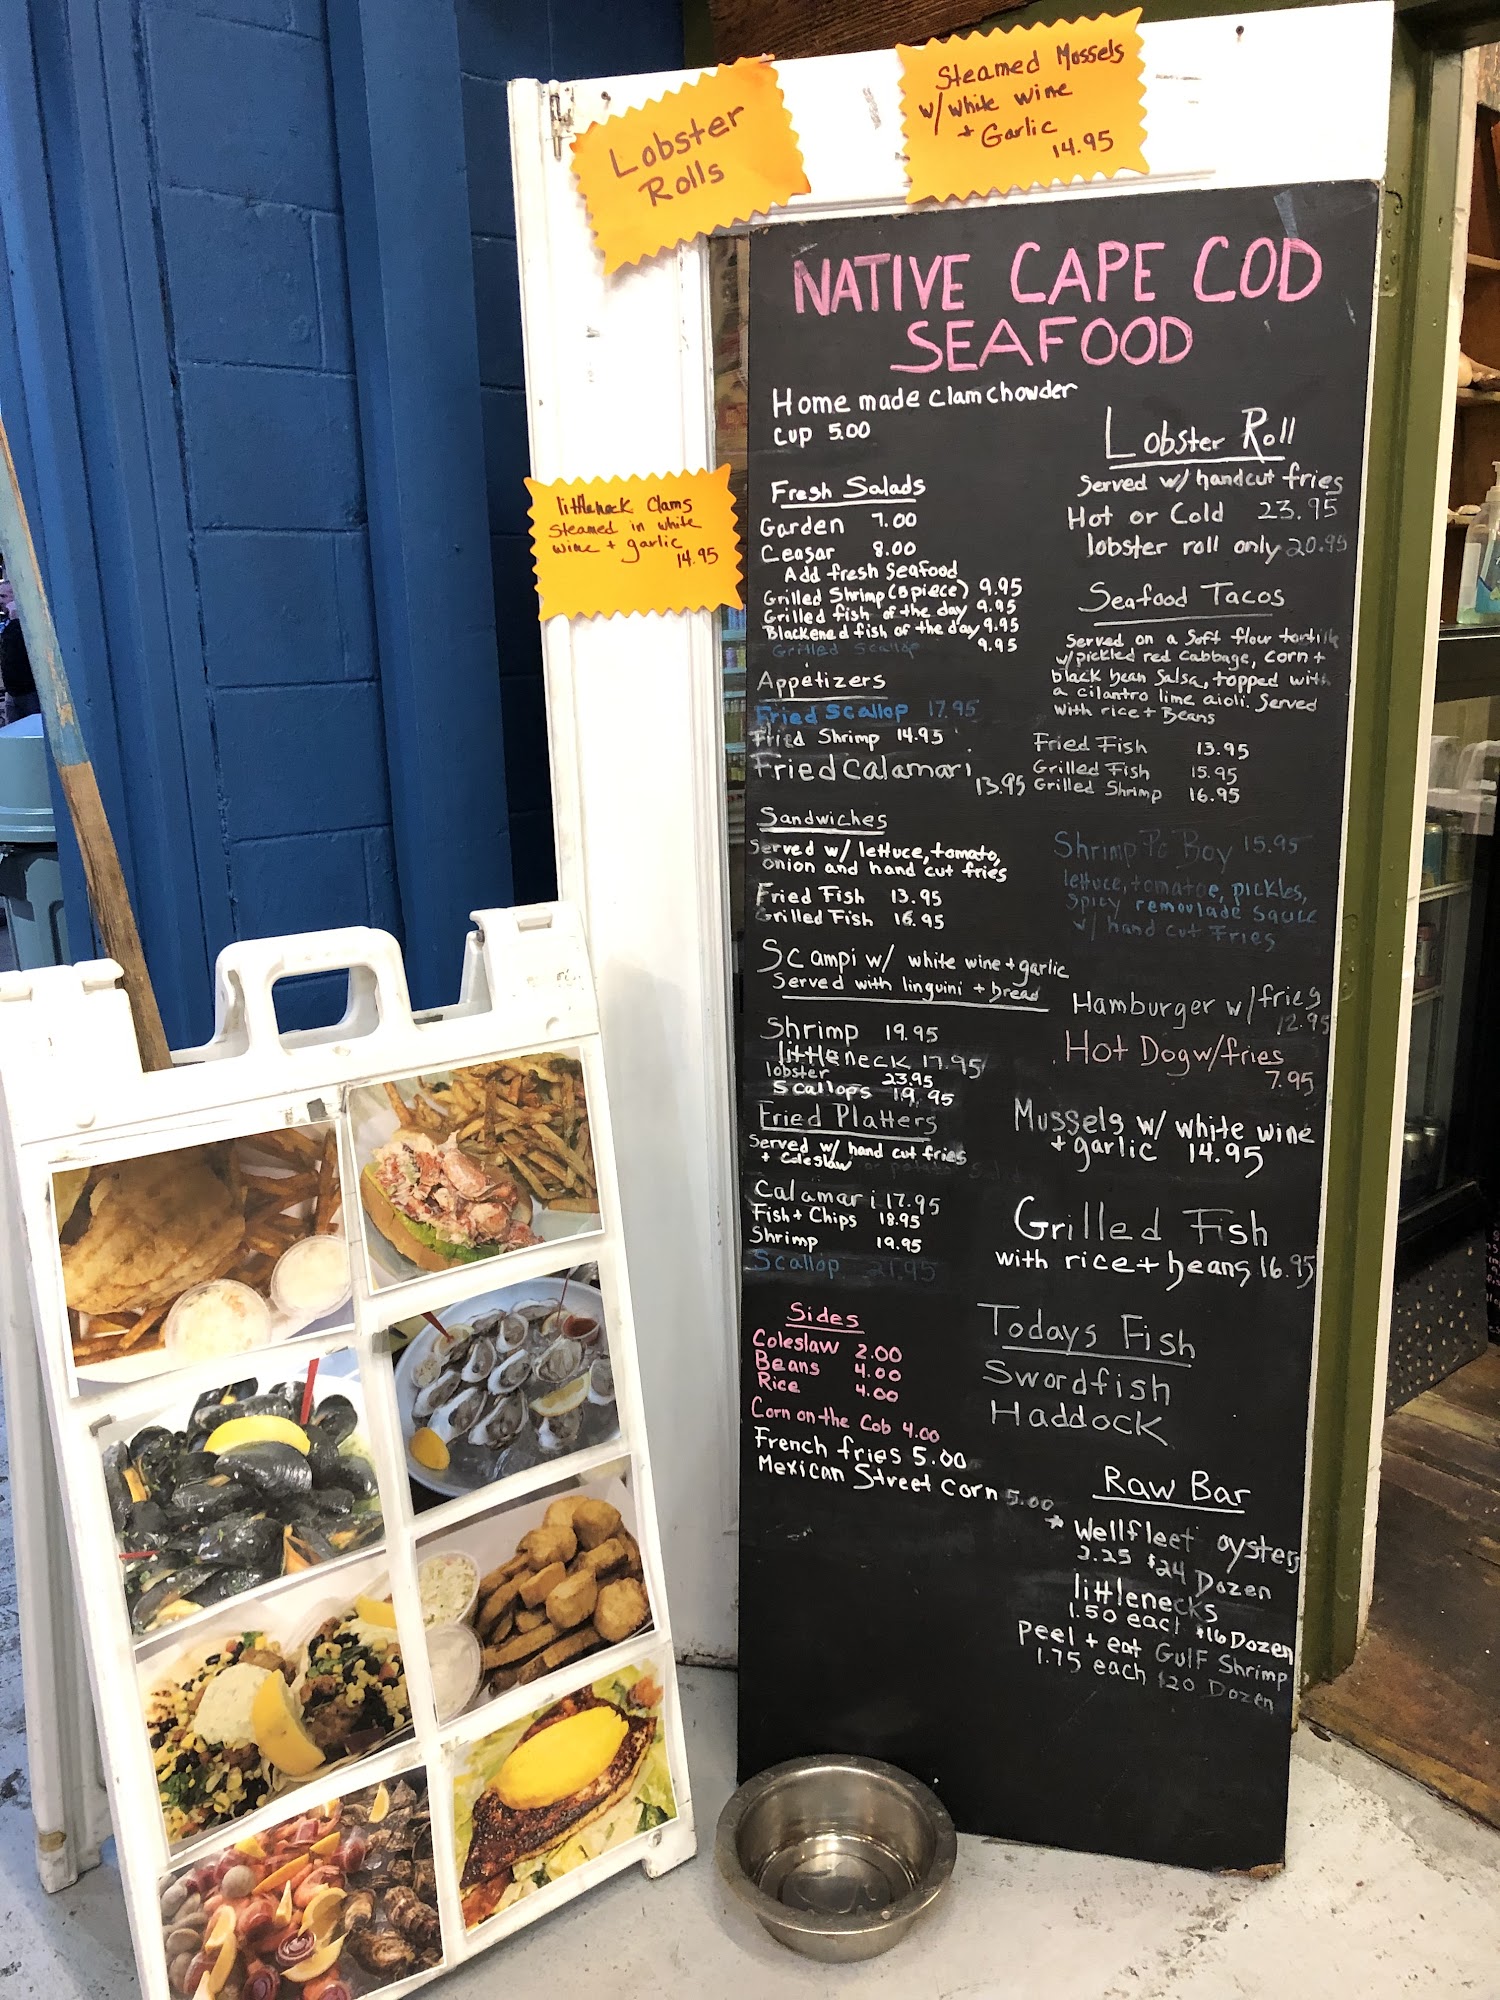 Lobster
Rolls
Steamed Mussels
w/ white wine
+ Garlic
14.95
littleneck Clams
Steamed in white
wine + garlic
14.95
NATIVE CAPE COD
SEAFOOD
Home made clam chowder
cup 5.00
Fresh Salads
Garden 7.00
Ceasar 8.00
Add fresh seafood
Grilled Shrimp (5 piece) 9.95
Grilled fish of the day 9.95
Blackened fish of the day 9.95
Grilled Scallop 9.95
Appetizers
Fried Scallop 17.95
Fried Shrimp 14.95
Fried Calamari
13.95
Sandwiches
Served w/ lettuce, tomato,
onion and hand cut fries
Fried Fish 13.95
Grilled Fish 16.95
Scampi w/ white wine + garlic
Served with linguini + bread
Shrimp 19.95
littleneck 17.95
lobster 23.95
Scallops 19.95
Fried Platters
Served w/ hand cut fries
+ Coleslaw or potato Salad
Calamari 17.95
Fish + Chips 18.95
Shrimp 19.95
Scallop 21.95
Sides
Coleslaw 2.00
Beans 4.00
Rice 4.00
Corn on the Cob 4.00
French fries 5.00
Mexican Street Corn 5.00
Lobster Roll
Served w/ handcut fries
Hot or Cold 23.95
lobster roll only 20.95
Seafood Tacos
Served on a soft flour tortilla
w/ pickled red cabbage, corn +
black bean salsa, topped with
a cilantro lime aioli. Served
with rice + Beans
Fried Fish 13.95
Grilled Fish 15.95
Grilled Shrimp 16.95
Shrimp Po Boy 15.95
lettuce, tomatoe, pickles,
spicy remoulade sauce
w/ hand cut Fries
Hamburger w/ fries
12.95
Hot Dog w/fries
7.95
Mussels w/ white wine
+ garlic 14.95
Grilled Fish
with rice + beans 16.95
Todays Fish
Swordfish
Haddock
Raw Bar
* Wellfleet oysters
2.25 $24 Dozen
littlenecks
1.50 each $16 Dozen
Peel + eat Gulf Shrimp
1.75 each $20 Dozen